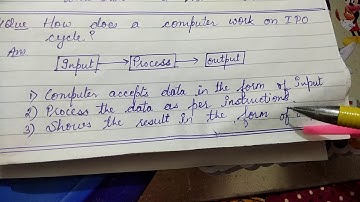 Que How does a computer work on IPO
cycle?
Ans
Input → Process → output
1) Computer accepts data in the form of Input
2) Process the data as per instructions.
3) Shows the result in the form of